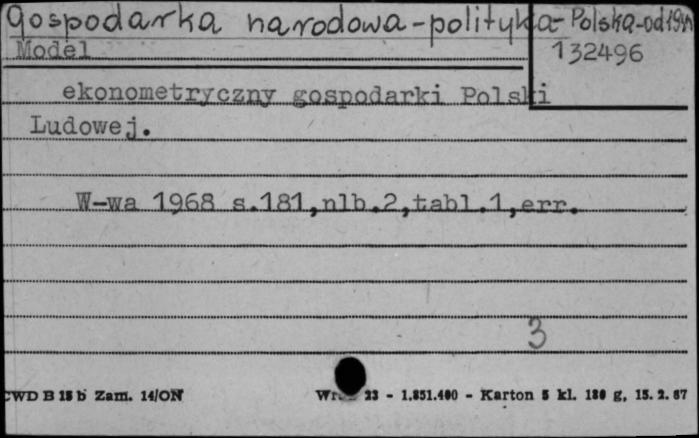 Gospodarka narodowa-polityka-Polska-od 1944
Model
132496
ekonometryczny gospodarki Polski
Ludowej.
W-wa 1968 s.181,nlb.2,tabl.1,err.
3
CWD B 18 b Zam. 14/ON
23 - 1.851.400 - Karton 5 kl. 180 g, 15.2.67